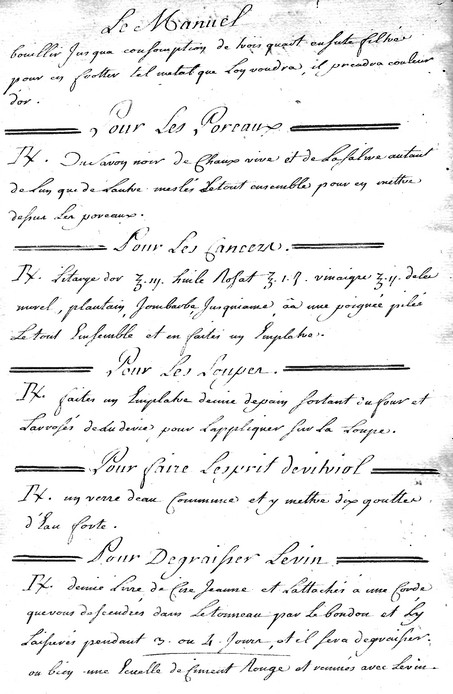 Le Manuel
bouillir Jusqua consomption de trois quart ensuite filtré
pour en frotter tel metal que Lon voudra, il prendra couleur
d'or.
Pour Les Poreaux
℞. Du Savon noir de Chaux vive et de La Salive autant
de Lun que de Lautre meslés Letout ensemble pour en mettre
dessus Les poreaux.
Pour Les Cancers.
℞. Litarge dor ʒ. iij. huile Rosat ʒ. i. ʒ. vinaigre ʒ. ij. dela
murel, plantain, Jombarbe, Jusquiame, āā une poignée pilés
Le tout Ensemble et en faites un Emplatre.
Pour Les Loupes.
℞. faites un Emplatre de mie depain sortant du four et
Larrosés de pour Lappliquer sur La Loupe.
Pour faire Lesprit devitriol
℞. un verre deau Commune et y mettre dix gouttes
d'Eau forte.
Pour Degraisser Levin
℞. demie Livre de Cire Jeaune et Lattachés a une Corde
que vous descendres dans Letonneau par Le bondon et Ly
Laisserés pendant 3. ou 4. Jours, et il sera degraisser.
ou bien une Ecuelle de Ciment Rouge et remués avec Levin.